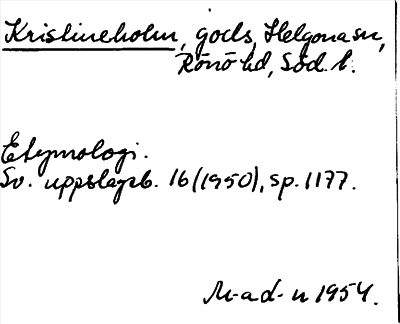 Kristineholm, gods, Helgona sn,
Rönö hd, Söd. l.
Etymologi.
Sv. uppslagsb. 16 (1950), sp. 1177.
M-a d-n 1954.